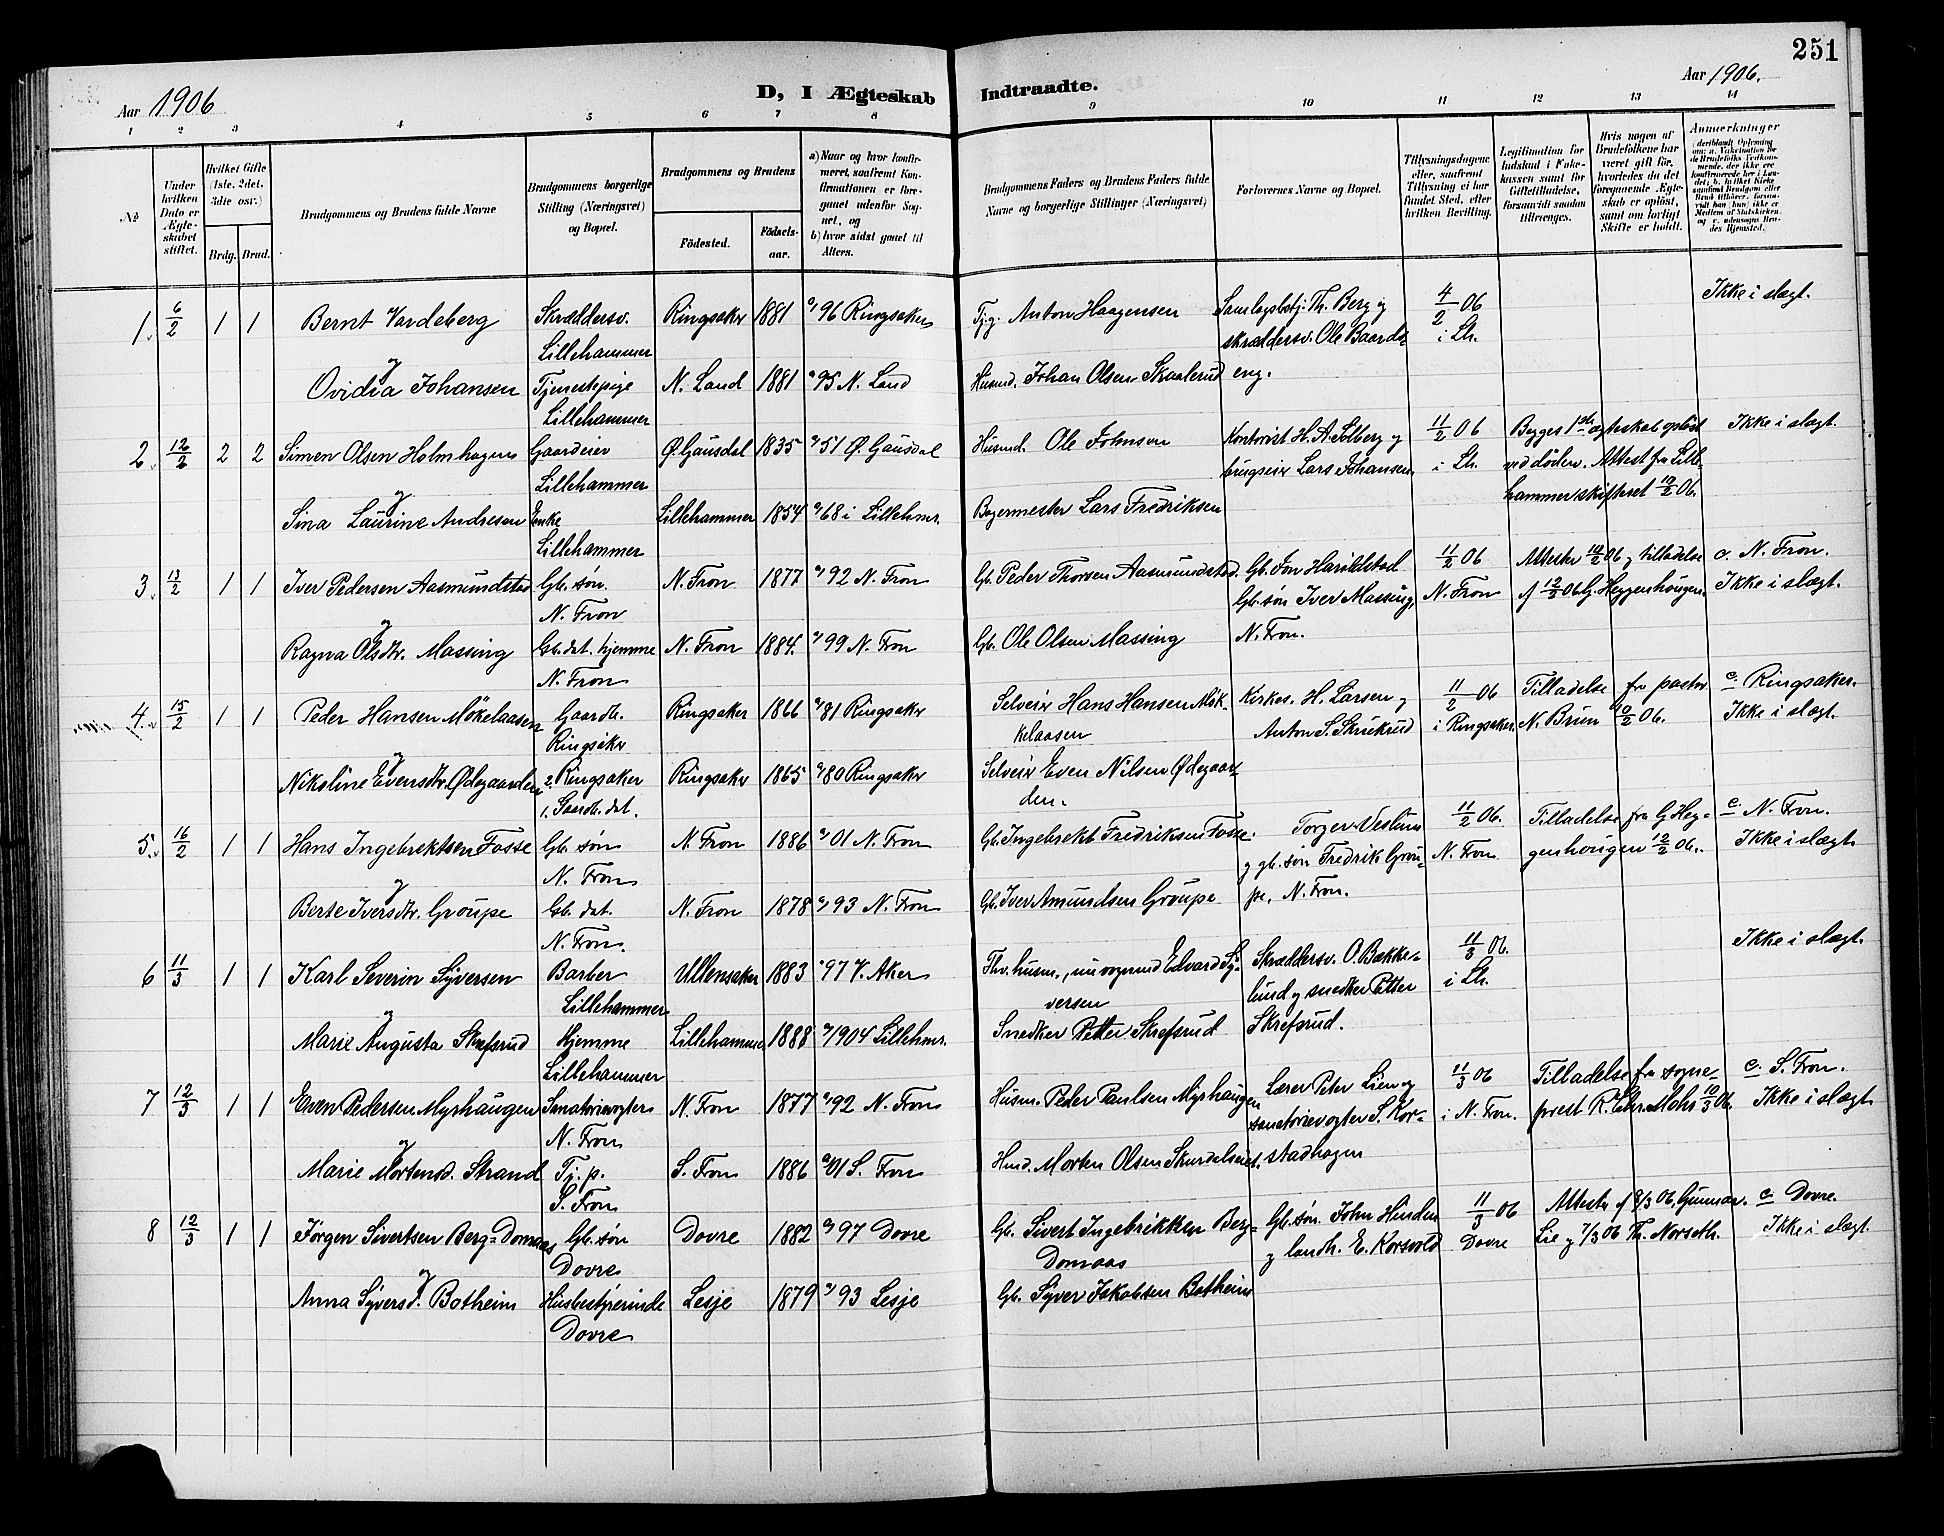 251
Aar 1906
D, I Ægteskab
Indtraadte.
Aar 1906.
1 2 3 4 5 6 7 8 9 10 11 12 13 14
No
Under hvilken Dato er Ægteskabet stiftet.
Hvilket Gifte (1ste, 2det, 3die osv.)
Brdg. Brud.
Brudgommens og Brudens fulde Navne
Brudgommens borgerlige Stilling (Næringsvei) og Bopæl.
Brudgommens og Brudens
Födested.
Födselsaar.
a) Naar og hvor konfirmeret, saafremt Konfirmationen er foregaaet udenfor Sognet, og
b) hvor sidst gaaet til Alters.
Brudgommens Faders og Brudens Faders fulde Navne og borgerlige Stillinger (Næringsvei)
Forlovernes Navne og Bopæl.
Tillysningsdagene eller, saafremt Tillysning ei har fundet Sted, efter hvilken Bevilling.
Legitimation for Indskud i Enkekassen samt for Giftetilladelse, forsaavidt saadan tiltrænges.
Hvis nogen af Brudefolkene har været gift för, hvorledes da det foregaaende Ægteskab er oplöst, samt om lovligt Skifte er holdt.
Anmerkninger
1. 6/2 1 1 Bernt Vardeberg Skræddersv. Ringsaker 1881 96 Ringsaker Anton Haagensen Th. Berg og 4/2 06 Ikke i slægt.
Lillehammer skræddersv. Ole Baards- i Lh.
og
Ovidia Johansen Tjenestepige N. Land 1881 95 N. Land Husmd. Johan Olsen Skaalerud eng.
Lillehammer
2. 12/2 2 2 Simen Olsen Holmhagen Gaardeier Ø. Gausdal 1835 51 Ø. Gausdal Husmd. Ole Johnsen Kontorist H. A. Solberg og 11/2 06 Begges 1ste ægteskab opløst Ikke i slægt.
Lillehammer brugseier Lars Johansen. i Lh. ved døden. Attest fra Lille-
og hammer skifteret 10/2 06.
Sina Laurine Andresen Enke Lillehammer 1854 68 i Lillehmr. Bagermester Lars Fredriksen
Lillehammer
3. 13/2 1 1 Iver Pedersen Aasmundstad Gb. søn. N. Fron 1877 92 N. Fron Gb. Peder Thorsen Aasmundstad. Gb. Jon Harildstad 11/2 06 Attester 10/2 06 og tilladelse c. N. Fron.
N. Fron Gb. søn Iver Massing, N. Fron af 12/2 06 G. Heggenhougen. Ikke i slægt.
og
Ragna Olsdtr. Massing Gb. dat. hjemme N. Fron 1884. 99 N. Fron Gb. Ole Olsen Massing N. Fron.
N. Fron
4. 15/2 1 1 Peder Hansen Mökelaasen Gaardb. Ringsaker 1866 81 Ringsaker Selveier Hans Hansen Mök- Kirkes. H. Larsen og 11/2 06 Tilladelse fra pastor c. Ringsaker.
Ringsaker kelaasen Anton S. Skrukrud i Ringsaker. N. Bruun 10/2 06. Ikke i slægt.
og
Nikoline Evensdtr. Ødegaarden 2. Ringsaker Ringsaker 1865 80 Ringsaker Selveier Even Nilsen Ødegaar-
1. Gaardb. dat. den.
5. 16/2 1 1 Hans Ingebrektsen Fosse Gb. søn N. Fron 1886 01 N. Fron Gb. Ingebrekt Fredriksen Fosse. Torger Veslum 11/2 06. Tilladelse fra G Heg- c. N. Fron.
N. Fron og gb. søn Fredrik Grou- N. Fron genhougen 12/2 06. Ikke i slægt.
og
Berte Iversdtr. Groupe Gb. dat. N. Fron 1878 93 N. Fron Gb. Iver Amundsen Groupe pe, N. Fron.
N. Fron.
6 11/3 1 1 Karl Severin Syversen Barber Ullensaker 1883 97 V. Aker Fhv. husm., Edvard Sy- Skræddersv. O. Bække- 11/3 06. Ikke i slægt.
Lillehammer versen lund og snedker Petter i Lh.
og
Marie Augusta Skrefsrud Hjemme Lillehammer 1888 1904 Lillehmr. Snedker Petter Skrefsrud Skrefsrud.
Lillehammer
7 12/3 1 1 Even Pedersen Myrhaugen Sanatorievogter N. Fron 1877 92 N. Fron Husm. Peder Paulsen Myrhaugen Lærer Peter Lien og 11/3 06 Tilladelse fra sogne- c. S. Fron.
N. Fron sanatorievogter S. Kor- i N. Fron. prest R. Chr. Mohr 10/3 06. Ikke i slægt.
og
Marie Mortensd. Strand Tj. p. S. Fron 1886 01 S. Fron Husmd. Morten Olsen Skurdalseiet. stadhagen
S. Fron
8 12/3 1 1 Jørgen Sivertsen Berg-Domaas Gb. søn Dovre 1882 97 Dovre Gb. Sivert Ingebrikken Berg- Gb. søn. John Hinden 11/3 06 Attester af 8/3 06, Gunnar. c. Dovre.
Dovre Domaas og landh. E. Korsvold Dovre Lie og 7/3 06 Th. Norseth. Ikke i slægt.
og
Anna Syversd. Botheim Husbestyrerinde Lesje 1879 93 Lesje Gb. Syver Jakobsen Botheim
Dovre